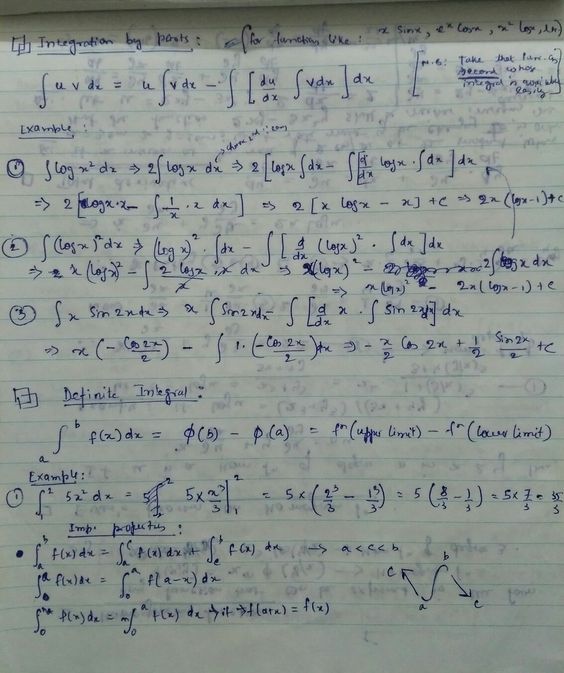 Integration by parts : for function like : x sinx, eˣ cosx, x² logx,
∫ u v dx = u ∫ v dx − ∫ [ du/dx ∫ v dx ] dx
[ N.B: Take that func. as second whose integral is available easily.
Example :
① ∫ log x² dx ⇒ 2 ∫ log x dx ⇒ 2 [ log x ∫ dx − ∫ [ d/dx log x · ∫ dx ] dx
⇒ 2 [ log x · x − ∫ 1/x · x dx ] ⇒ 2 [ x log x − x ] + c ⇒ 2x (log x − 1) + c
② ∫ (log x)² dx ⇒ (log x)² · ∫ dx − ∫ [ d/dx (log x)² · ∫ dx ] dx
⇒ x (log x)² − ∫ 2 log x / x · x dx ⇒ x (log x)² − 2 ∫ log x dx
⇒ x (log x)² − 2x (log x − 1) + c
③ ∫ x Sin 2x dx ⇒ x ∫ Sin 2x dx − ∫ [ d/dx x · ∫ sin 2x dx ] dx
⇒ x ( − Cos 2x / 2 ) − ∫ 1 · ( − Cos 2x / 2 ) dx ⇒ − x/2 Cos 2x + 1/2 Sin 2x / 2 + c
Definite Integral :
∫ₐᵇ f(x) dx = φ(b) − φ(a) = fⁿ (upper limit) − fⁿ (lower limit)
Example :
① ∫₁² 5x² dx = 5 ∫₁² 5 × x³/3 |₁² = 5 × ( 2³/3 − 1³/3 ) = 5 ( 8/3 − 1/3 ) = 5 × 7/3 = 35/3
Imp. properties :
• ∫ₐᵇ f(x) dx = ∫ₐᶜ f(x) dx + ∫꜀ᵇ f(x) dx → a < c < b
∫₀ᵃ f(x) dx = ∫₀ᵃ f(a−x) dx
∫₀ⁿᵃ f(x) dx = n ∫₀ᵃ f(x) dx → if → f(a+x) = f(x)
c b
a c